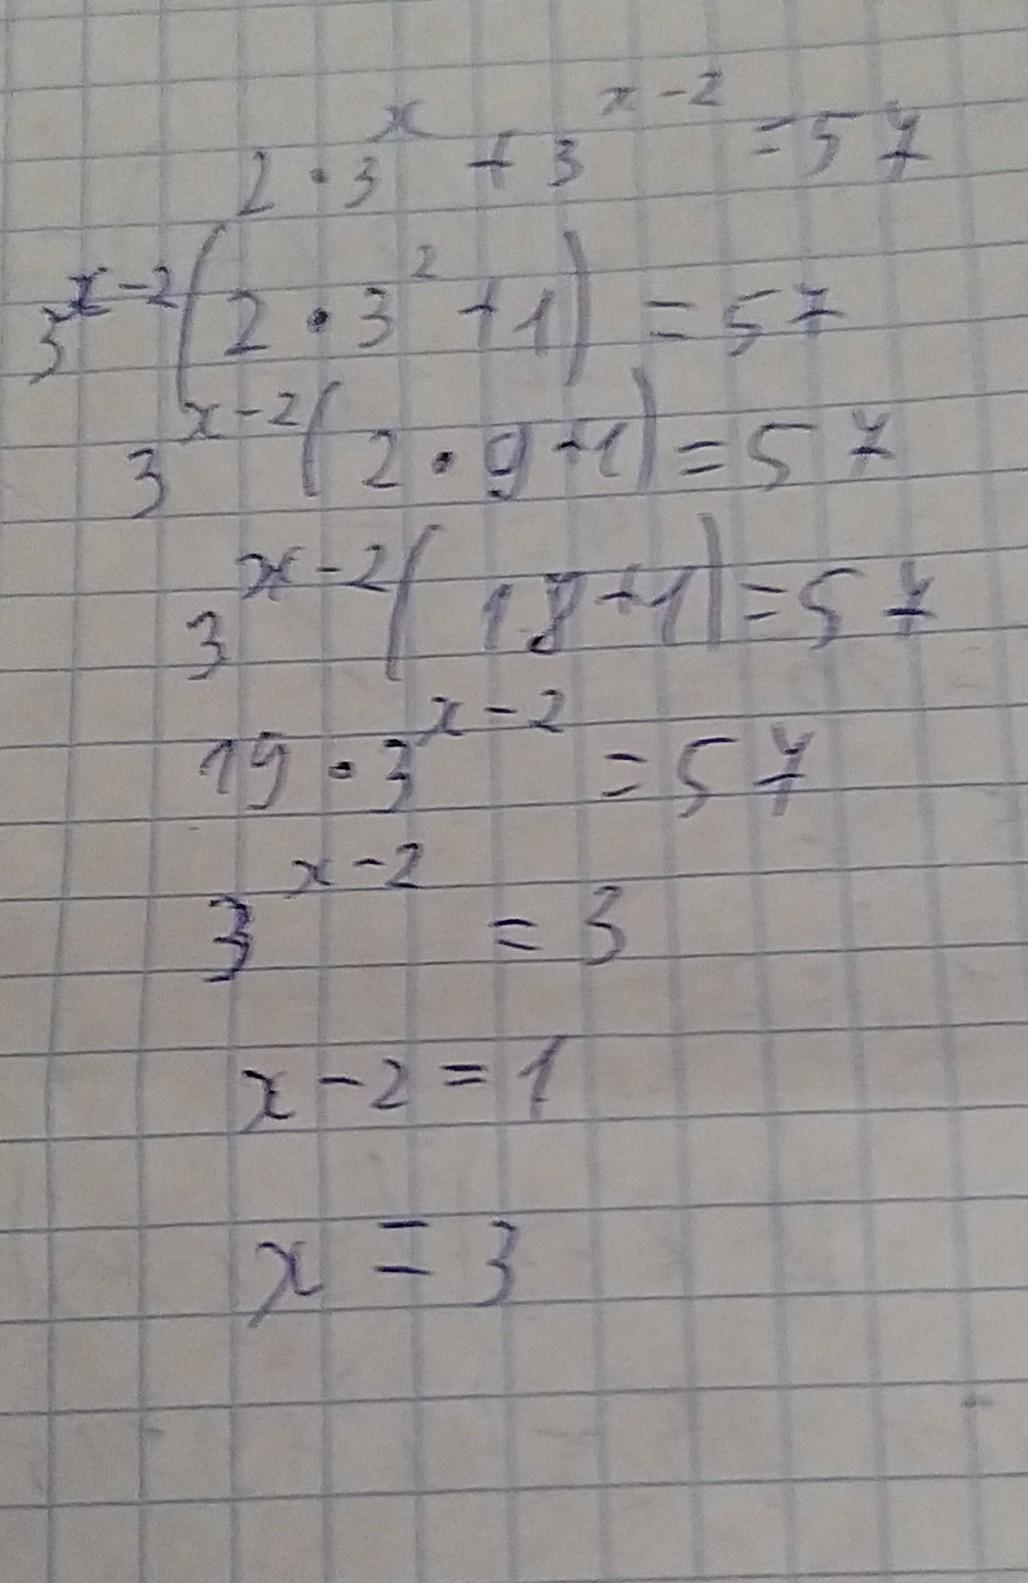 2 · 3^x + 3^(x-2) = 57
3^(x-2) (2 · 3^2 + 1) = 57
3^(x-2) (2 · 9 + 1) = 57
3^(x-2) (18 + 1) = 57
19 · 3^(x-2) = 57
3^(x-2) = 3
x - 2 = 1
x = 3